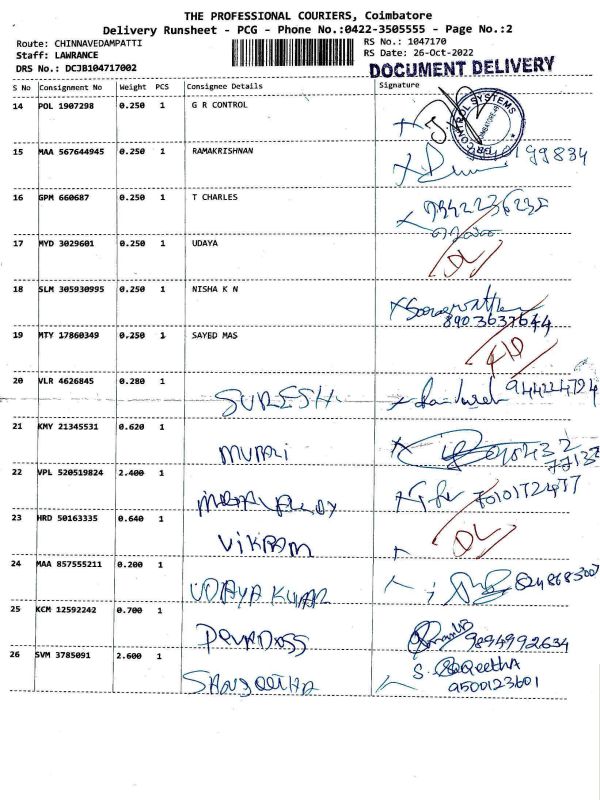 THE PROFESSIONAL COURIERS, Coimbatore
Delivery Runsheet - PCG - Phone No.:0422-3505555 - Page No.:2
Route: CHINNAVEDAMPATTI
Staff: LAWRANCE
DRS No.: DCJB104717002
RS No.: 1047170
RS Date: 26-Oct-2022
DOCUMENT DELIVERY
S No Consignment No Weight PCS Consignee Details Signature
14 POL 1907298 0.250 1 G R CONTROL
CONTROL SYSTEMS
15 MAA 567644945 0.250 1 RAMAKRISHNAN
16 GPM 660687 0.250 1 T CHARLES
17 MYD 3029601 0.250 1 UDAYA DL
18 SLM 305930995 0.250 1 NISHA K N 8903637644
19 MTY 17860349 0.250 1 SAYED MAS
20 VLR 4626845 0.280 1 SURESH
21 KMY 21345531 0.620 1 MURALI
22 VPL 520519824 2.400 1
23 HRD 50163335 0.640 1 VIKRAM DL
24 MAA 857555211 0.200 1 UDAYA KUMAR
25 KCM 12592242 0.700 1 DEVADOSS 9894992634
26 SVM 3785091 2.600 1 SANGEETHA 9500123601